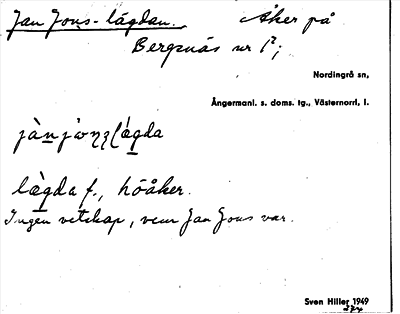 Jan Jons-lägdan. Åker på
Bergsnäs nr 1²;
Nordingrå sn,
Ångermanl. s. doms. tg., Västernorrl. l.
lägda f., höåker.
Ingen vetskap, vem Jan Jons var.
Sven Hiller 1949